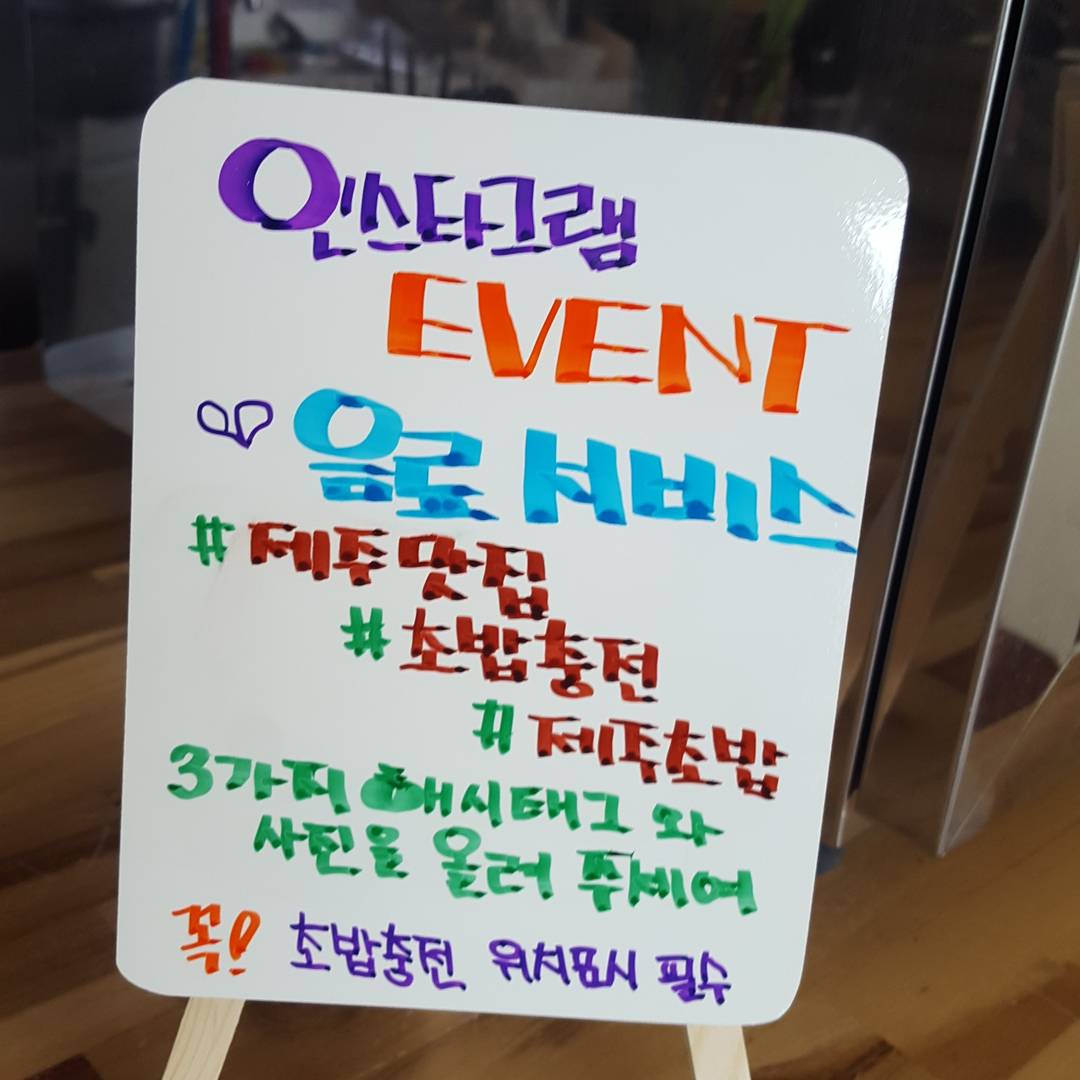 인스타그램
EVENT
음료 서비스
#제주맛집
#초밥충전
#제주초밥
3가지 해시태그와
사진을 올려 주세여
꼭! 초밥충전 위치표시 필수